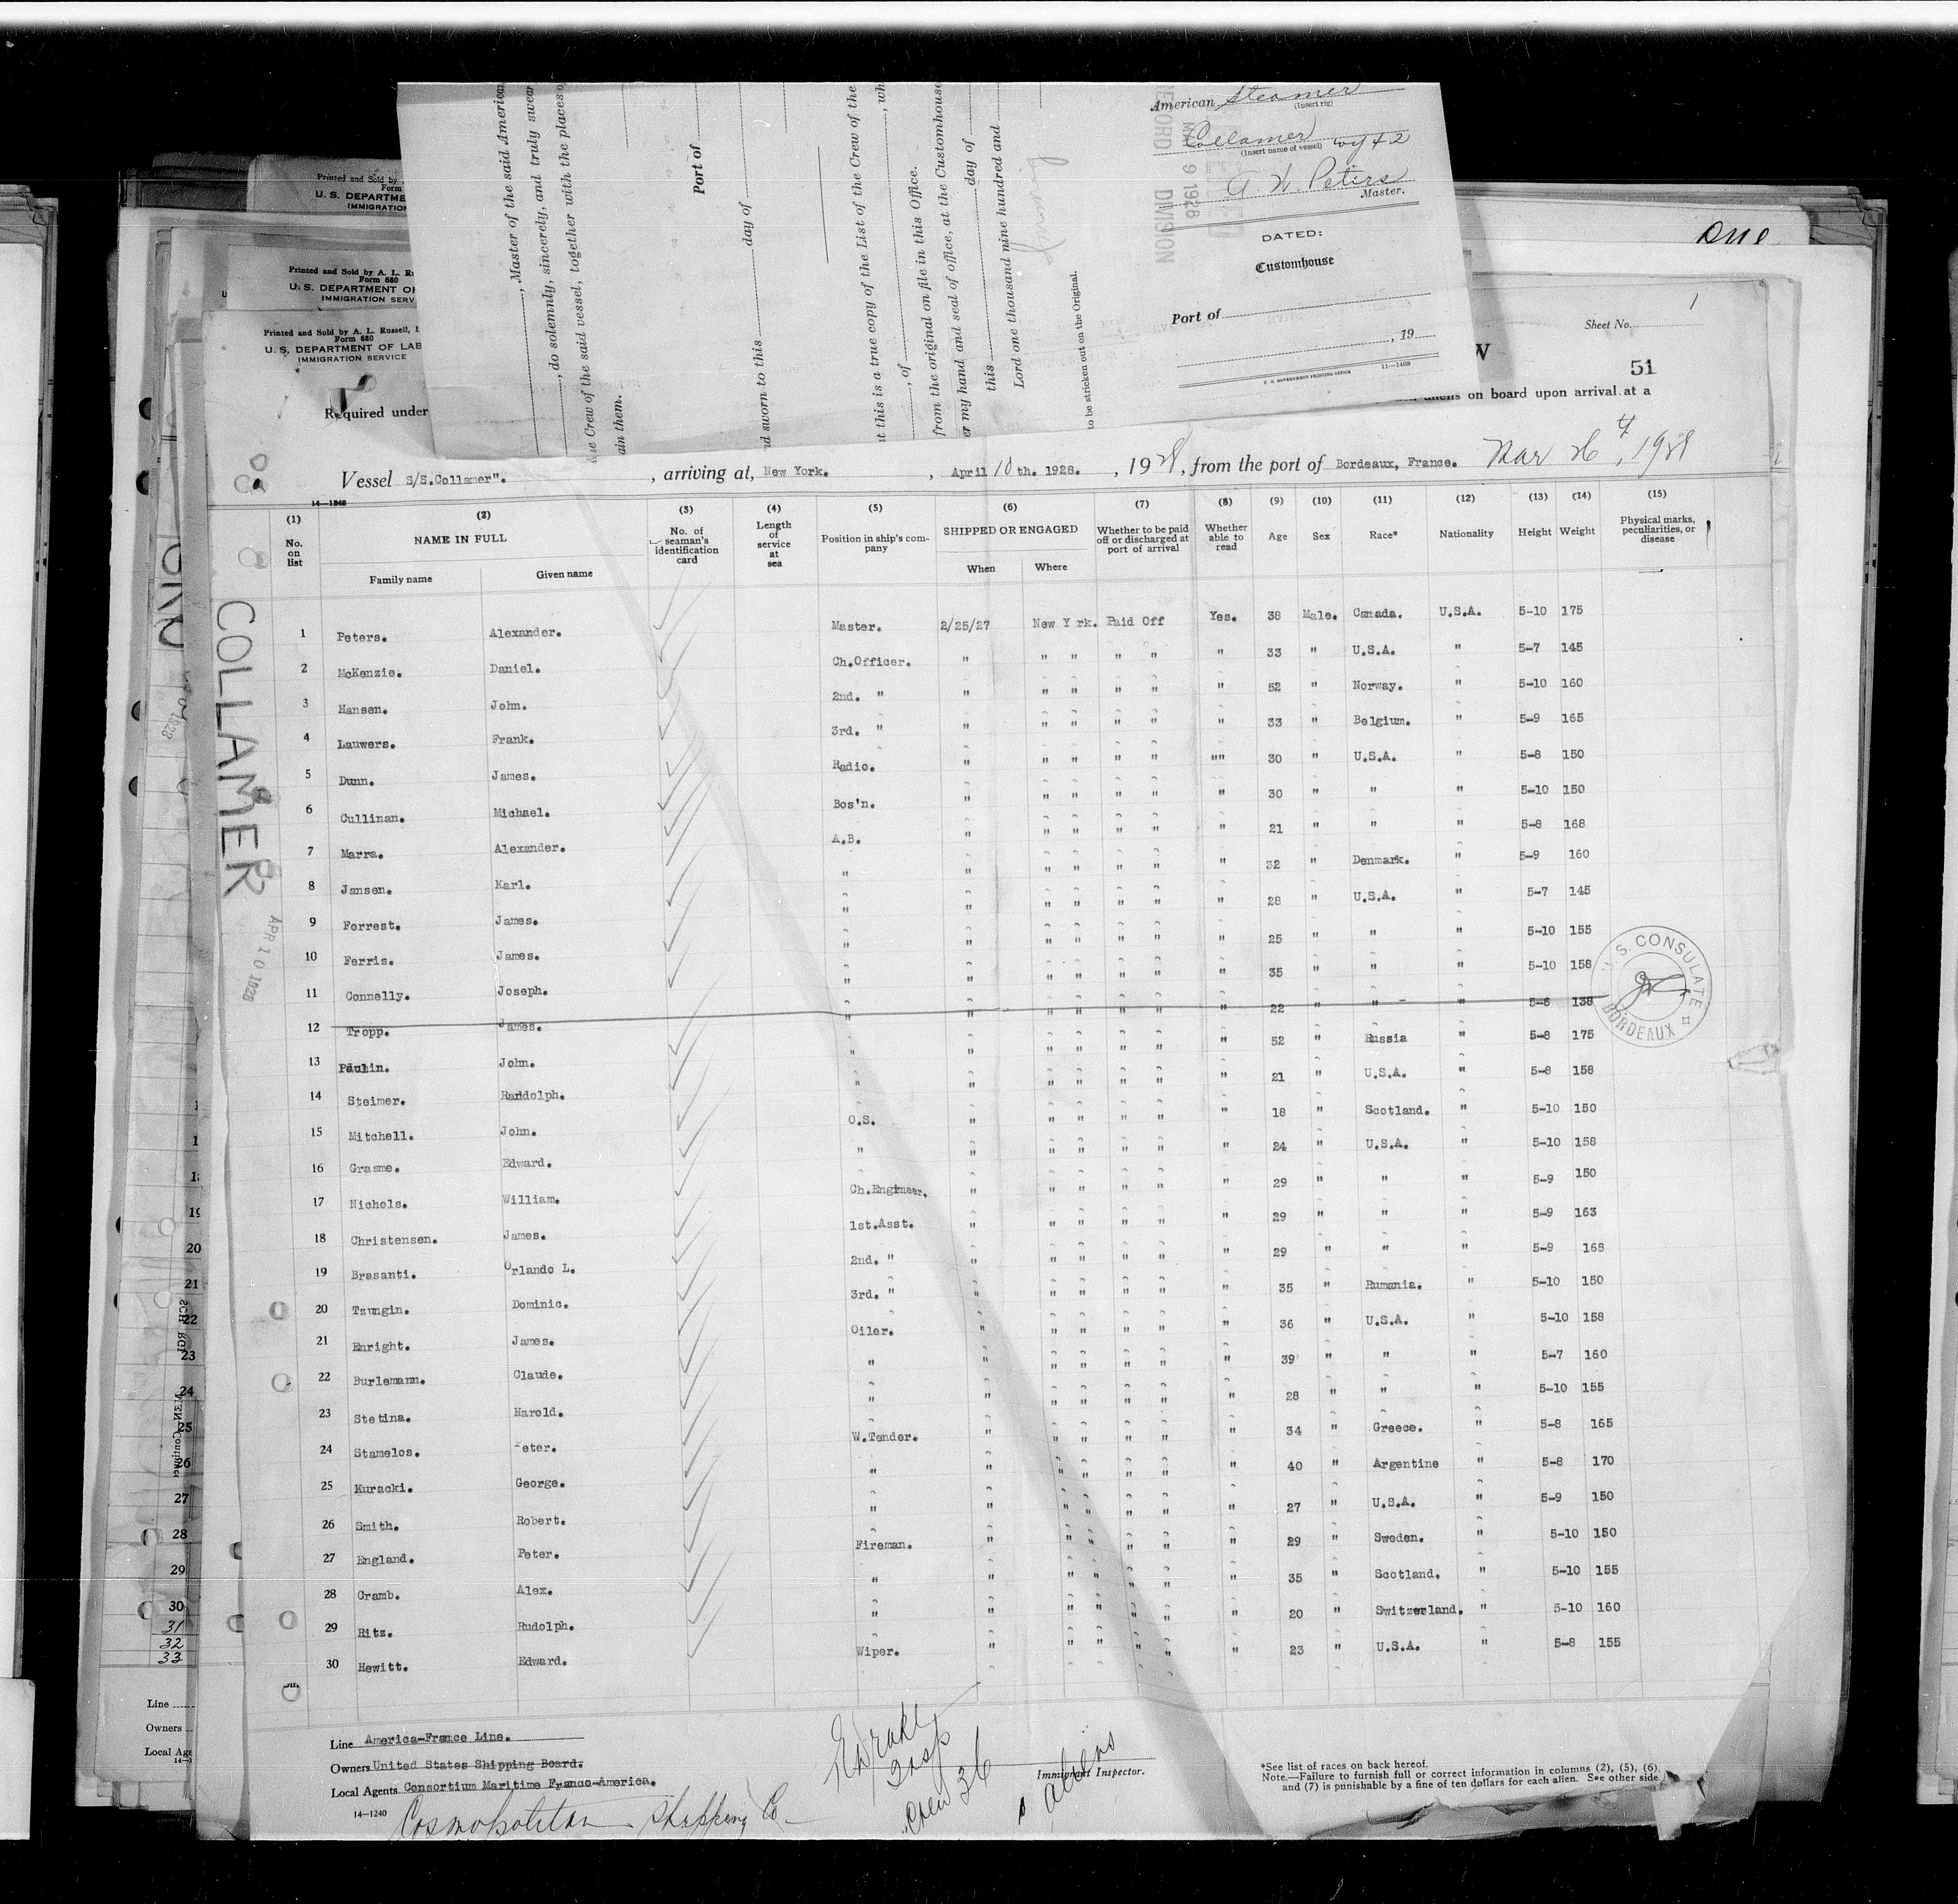 Printed and Sold by
Form
U. S. DEPARTME
IMMIGRATION
Printed and Sold by A. L. Ru
Form 680
U. S. DEPARTMENT OF
IMMIGRATION SERV
Printed and Sold by A. L. Russell, I
Form 680
U. S. DEPARTMENT OF LAB
IMMIGRATION SERVICE
Required under
, Master of the said American
, do solemnly, sincerely, and truly swear
he Crew of the said vessel, together with the places o
ain them.
Port of
day of
d sworn to this
t this is a true copy of the List of the Crew of the
, of , wh
from the original on file in this Office.
er my hand and seal of office, at the Customhouse
this day of
Lord one thousand nine hundred and
to be stricken out on the Original.
American Steamer
(Insert rig)
Collamer
(Insert name of vessel)
A. W. Peters
Master.
DATED:
Customhouse
Port of
, 19
U. S. GOVERNMENT PRINTING OFFICE 11—1408
RECORD DIVISION
9 1928
One
Sheet No. 1
W
51
aliens on board upon arrival at a
Vessel S/S.Collamer". , arriving at, New York. , April 10th. 1928. , 1928, from the port of Bordeaux, France. Mar 26, 1928
14—1240
(1) No. on list (2) NAME IN FULL Family name Given name (3) No. of seaman's identification card (4) Length of service at sea (5) Position in ship's company (6) SHIPPED OR ENGAGED When Where (7) Whether to be paid off or discharged at port of arrival (8) Whether able to read (9) Age (10) Sex (11) Race* (12) Nationality (13) Height (14) Weight (15) Physical marks, peculiarities, or disease
1 Peters. Alexander. Master. 2/25/27 New Y rk. Paid Off Yes. 38 Male. Canada. U.S.A. 5-10 175
2 McKenzie. Daniel. Ch.Officer. " " " " " " 33 " U.S.A. " 5-7 145
3 Hansen. John. 2nd. " " " " " " " 52 " Norway. " 5-10 160
4 Lauwers. Frank. 3rd. " " " " " " " 33 " Belgium. " 5-9 165
5 Dunn. James. Radio. " " " " " "" 30 " U.S.A. " 5-8 150
6 Cullinan. Michael. Bos'n. " " " " " " 30 " " " 5-10 150
7 Marra. Alexander. A.B. " " " " " " 21 " " " 5-8 168
8 Jansen. Karl. " " " " " " " 32 " Denmark. " 5-9 160
9 Forrest. James. " " " " " " " 28 " U.S.A. " 5-7 145
10 Ferris. James. " " " " " " " 25 " " " 5-10 155
11 Connelly. Joseph. " " " " " " " 35 " " " 5-10 158
12 Tropp. James. " " " " " " " 22 " " " 5-8 138
13 Paulin. John. " " " " " " " 52 " Russia " 5-8 175
14 Steimer. Randolph. " " " " " " " 21 " U.S.A. " 5-8 158
15 Mitchell. John. O.S. " " " " " " 18 " Scotland. " 5-10 150
16 Grasme. Edward. " " " " " " " 24 " U.S.A. " 5-10 158
17 Nichols. William. Ch.Engineer. " " " " " " 29 " " " 5-9 150
18 Christensen. James. 1st.Asst. " " " " " " 29 " " " 5-9 163
19 Brasanti. Orlando L. 2nd. " " " " " " " 29 " " " 5-9 168
20 Tzungin. Dominic. 3rd. " " " " " " " 35 " Rumania. " 5-10 150
21 Enright. James. Oiler. " " " " " " 36 " U.S.A. " 5-10 158
22 Burlemann. Claude. " " " " " " " 39 " " " 5-7 160
23 Stetina. Harold. " " " " " " " 28 " " " 5-10 155
24 Stamelos. Peter. W.Tender. " " " " " " 34 " Greece. " 5-8 165
25 Kuracki. George. " " " " " " " 40 " Argentine " 5-8 170
26 Smith. Robert. " " " " " " " 27 " U.S.A. " 5-9 150
27 England. Peter. Fireman. " " " " " " 29 " Sweden. " 5-10 150
28 Cramb. Alex. " " " " " " " 35 " Scotland. " 5-10 155
29 Ritz. Rudolph. " " " " " " " 20 " Switzerland. " 5-10 160
30 Hewitt. Edward. Wiper. " " " " " " 23 " U.S.A. " 5-8 155
COLLAMER
APR 10 1928
U.S. CONSULATE
BORDEAUX
20
21
22
23
24
25
26
27
28
29
30
31
32
33
Line
Owners
Local Age
Line America-France Line.
Owners United States Shipping Board.
Local Agents Consortium Maritime Franco-America.
14—1240
Cosmopolitan Shipping Co
Insp
Crew 36
aliens
Immigrant Inspector.
*See list of races on back hereof.
Note.—Failure to furnish full or correct information in columns (2), (5), (6),
and (7) is punishable by a fine of ten dollars for each alien. See other side